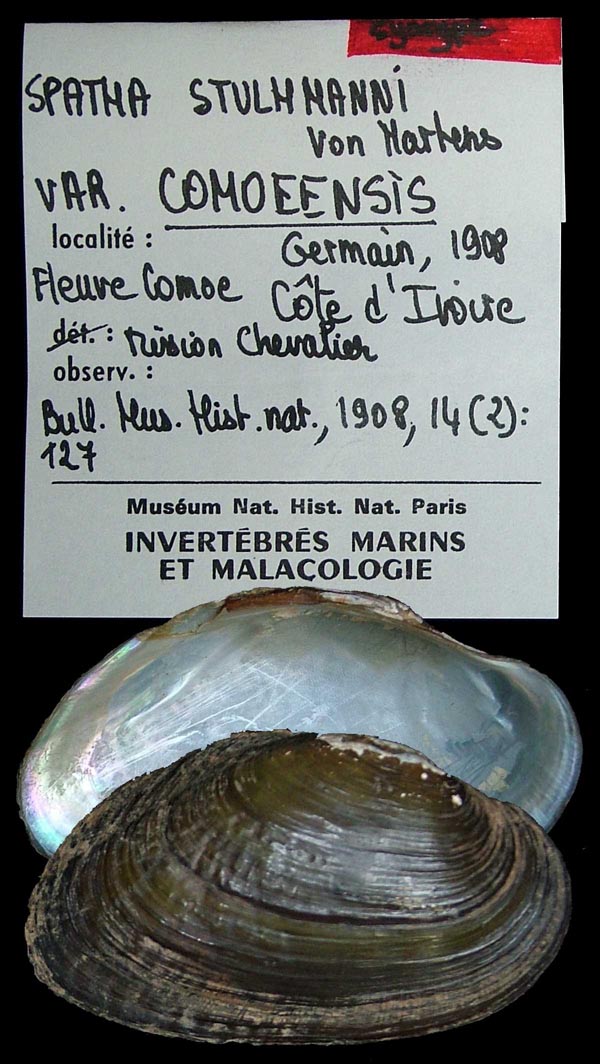 SPATHA STULHMANNI
Von Martens
VAR. COMOEENSIS
localité :
Germain, 1908
Fleuve Comoe Côte d'Ivoire
dét. : Mission Chevalier
observ. :
Bull. Mus. Hist. nat., 1908, 14 (2):
127
Muséum Nat. Hist. Nat. Paris
INVERTÉBRÉS MARINS
ET MALACOLOGIE